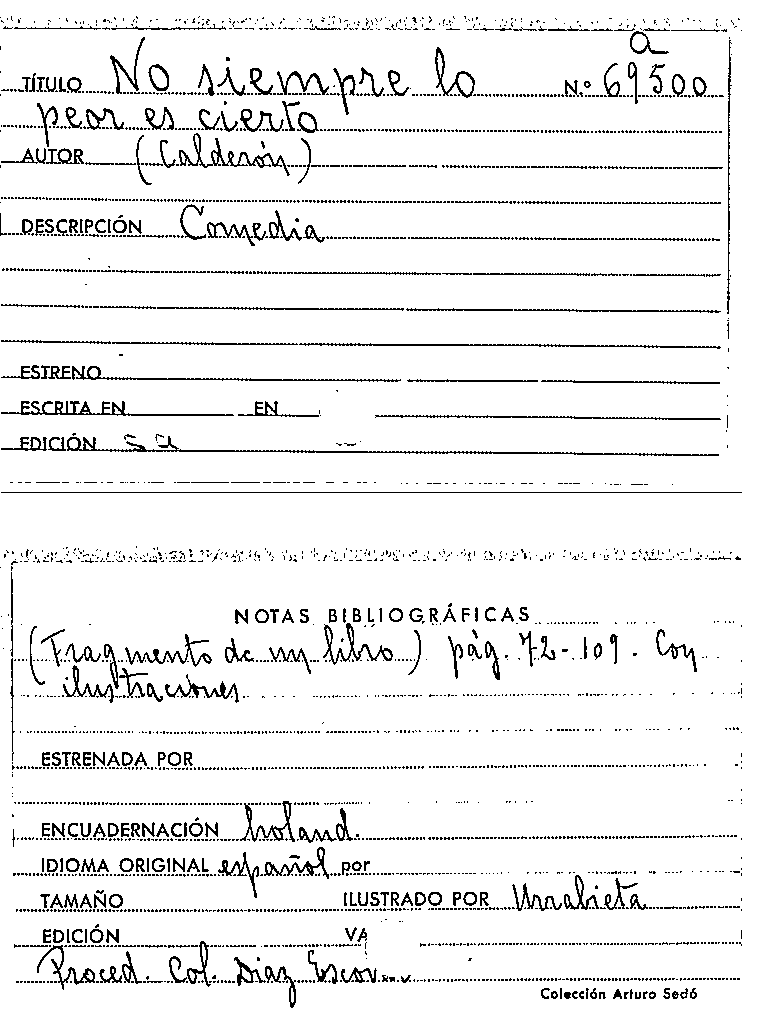 a
TÍTULO No siempre lo N.º 69500
peor es cierto
AUTOR (Calderón)
DESCRIPCIÓN Comedia
ESTRENO
ESCRITA EN EN
EDICIÓN sa
NOTAS BIBLIOGRÁFICAS
(Fragmento de un libro) pág. 72-109. Con
ilustraciones
ESTRENADA POR
ENCUADERNACIÓN holand.
IDIOMA ORIGINAL español por
TAMAÑO ILUSTRADO POR Urrabieta
EDICIÓN VA
Proced. Col. Diaz
Colección Arturo Sedó